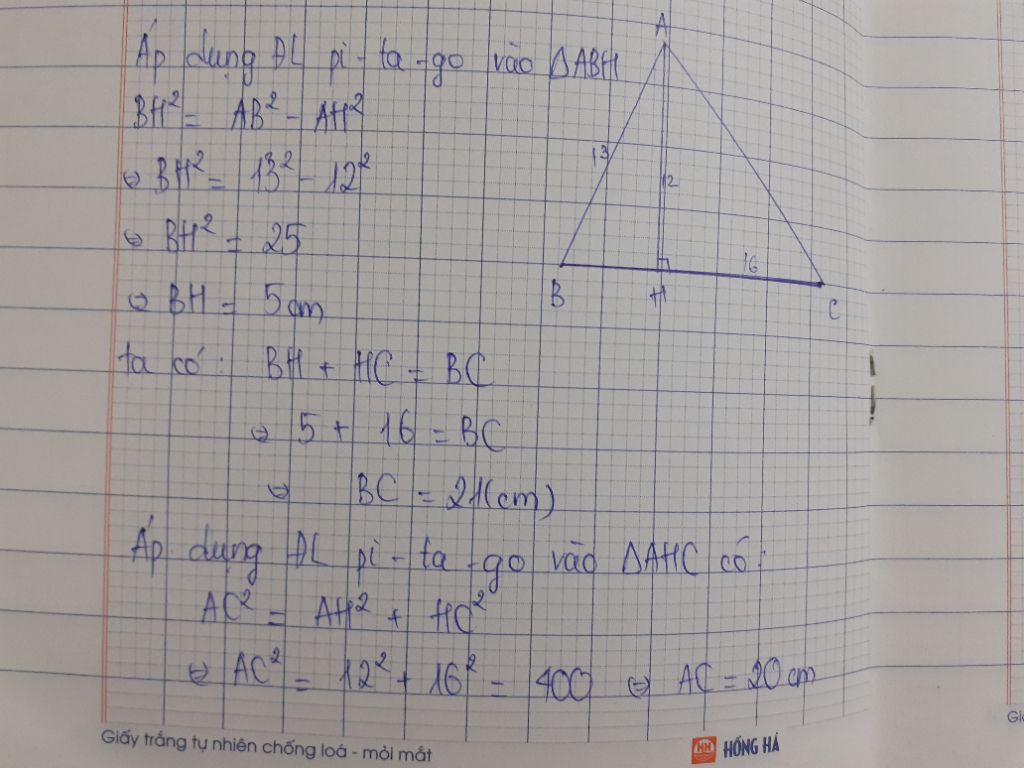 Áp dụng ĐL pi-ta-go vào ΔABH
BH² = AB² - AH²
⇔ BH² = 13² - 12²
⇔ BH² = 25
⇔ BH = 5cm
ta có: BH + HC = BC
⇔ 5 + 16 = BC
⇔ BC = 21(cm)
Áp dụng ĐL pi-ta-go vào ΔAHC có:
AC² = AH² + HC²
⇔ AC² = 12² + 16² = 400 ⇔ AC = 20cm
A
13
12
16
B
H
C
Giấy trắng tự nhiên chống loá - mỏi mắt
HH HỒNG HÀ